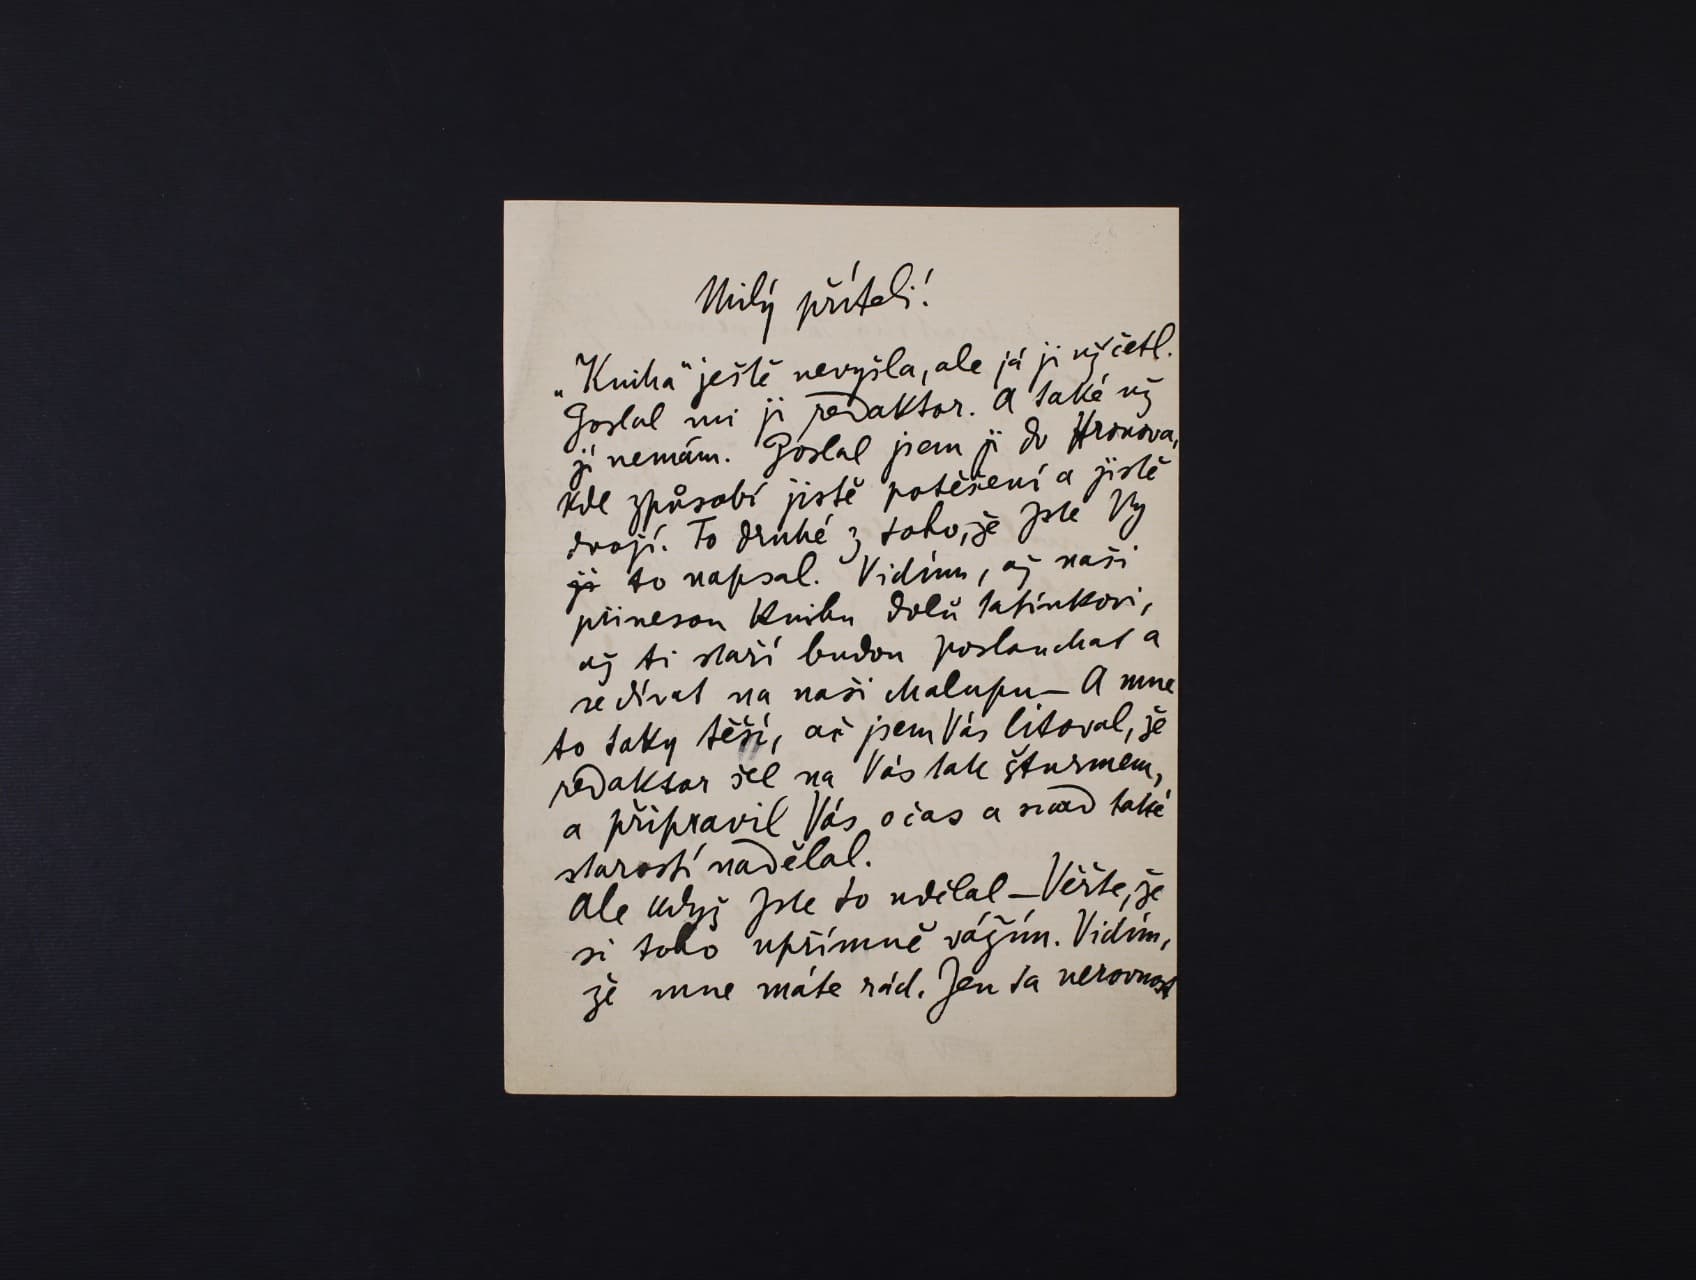 Milý příteli!
„Kniha" ještě nevyšla, ale já ji už četl.
Poslal mi ji redaktor. A také už
ji nemám. Poslal jsem ji do Hronova,
kde způsobí jistě potěšení a jistě
dvojí. To druhé z toho, že jste Vy
to napsal. Vidím, až naši
přinesou knihu dolů tatínkovi,
až ti staří budou poslouchat a
se dívat na naši chalupu — A mne
to taky těší, ač jsem Vás litoval, že
redaktor šel na Vás tak šturmem,
a připravil Vás o čas a snad také
starostí nadělal.
Ale když jste to udělal — Věřte, že
si toho upřímně vážím. Vidím,
že mne máte rád. Jen ta nerovnost